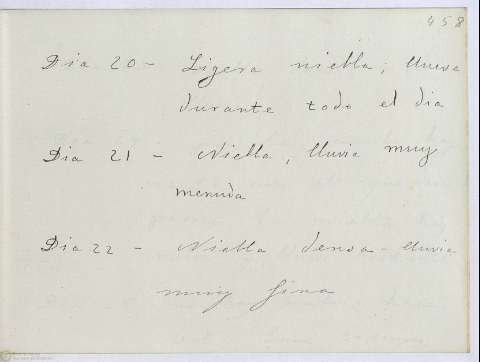 458
Dia 20 - Ligera niebla; llueve
durante todo el dia
Dia 21 - Niebla, lluvia muy
menuda
Dia 22 - Niebla densa - lluvia
muy fina